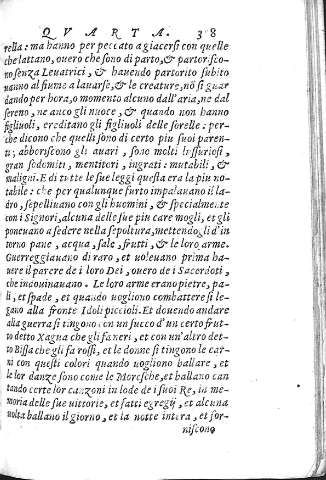 QVARTA. 318
rella: ma hanno per peccato a giacersi con quelle
che lattano, ouero che sono di parto, & partorisco-
no senza Leuatrici, & hauendo partorito subito
uanno al fiume a lauarse, & le creature, nõ si guar
dando per hora, o momento alcuno dall'aria, ne dal
sereno, ne anco gli nuoce, & quando non hanno
figliuoli, ereditano gli figliuoli delle sorelle: per-
che dicono che quelli sono di certo piu suoi paren-
ti; abboriscono gli auari, sono molti lussuriosi,
gran sodomiti, mentitori, ingrati: mutabili, &
maligni. E di tutte le sue leggi questa era la piu no-
tabile: che per qualunque furto impalauano il la-
dro, sepelliuano con gli huomini, & specialmente
con i Signori, alcuna delle sue piu care mogli, et gli
poneuano a sedere nella sepoltura, mettendogli d'in
torno pane, acqua, sale, frutti, & le loro arme.
Guerreggiauano di raro, et uoleuano prima ha-
uere il parere de i loro Dei, ouero de i Sacerdoti,
che indouinauano. Le loro arme erano pietre, pa-
li, et spade, et quando uogliono combattere si le-
gano alla fronte Idoli piccioli. Et douendo andare
alla guerra si tingono con un succo d'un certo frut-
to detto Xagua che gli fa neri, et con un'altro det-
to Bissa che gli fa rossi, et le donne si tingono le car-
ni con questi colori quando uogliono ballare, et
le lor danze sono come le Moresche, et ballano can
tando certe lor canzoni in lode de i suoi Re, in me-
moria delle sue uittorie, et fatti egregij, et alcuna
uolta ballano il giorno, et la notte intera, et for-
niscono